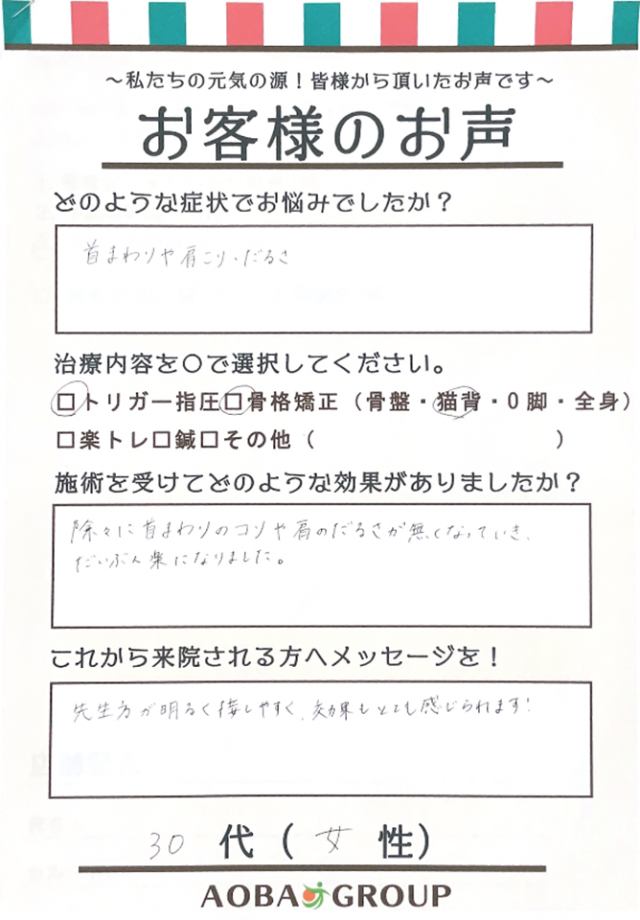 ～私たちの元気の源！皆様から頂いたお声です～
お客様のお声
どのような症状でお悩みでしたか？
首まわりや肩こり・だるさ
治療内容を〇で選択してください。
□トリガー指圧□骨格矯正（骨盤・猫背・O脚・全身）
□楽トレ□鍼□その他（　　　　　　　　　　）
施術を受けてどのような効果がありましたか？
除々に首まわりのコリや肩のだるさが無くなっていき、
だいぶん楽になりました。
これから来院される方へメッセージを！
先生方が明るく接しやすく、効果もとても感じられます！
30 代（女 性）
AOBA GROUP